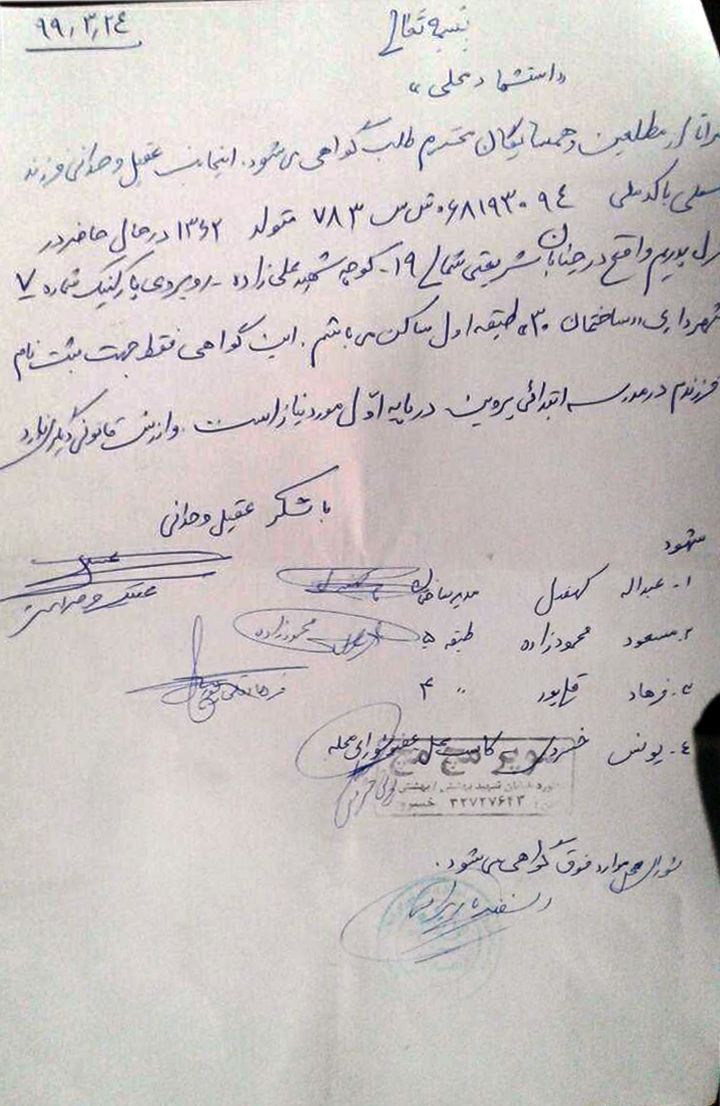 ۹۹/۳/۲٤
بسمه تعالی
«استشهاد محلی»
از مطلعین و همسایگان محترم طلب گواهی می شود. اینجانب عقیل وحدانی فرزند
با کد ملی ۰۶۸۱۹۳۰۹٤ ش س ۷۸۳ متولد ۱۳۶۲ در حال حاضر در
پدریم واقع در خیابان شریعتی شمالی ۱۹- کوچه شهید علی زاده - روبروی پارکینگ شماره ۷
شهرداری «ساختمان ۳۰» طبقه اول ساکن می باشم. این گواهی فقط جهت ثبت نام
فرزندم در مدرسه ابتدائی پروین در پایه اوّل مورد نیاز است. و ارزش قانونی دیگری ندارد
با تشکر عقیل وحدانی
شهود
۱- عبداله مدیر ساختمان
۲- مسعود محمودزاده طبقه ۵ محمودزاده
۳- فرهاد قلی پور ״ ۴
٤- یونس خسروی کاسب محل عضو شورای محله
۳۲۷۲۷۶۲۳ خسروی
موارد فوق گواهی می شود.